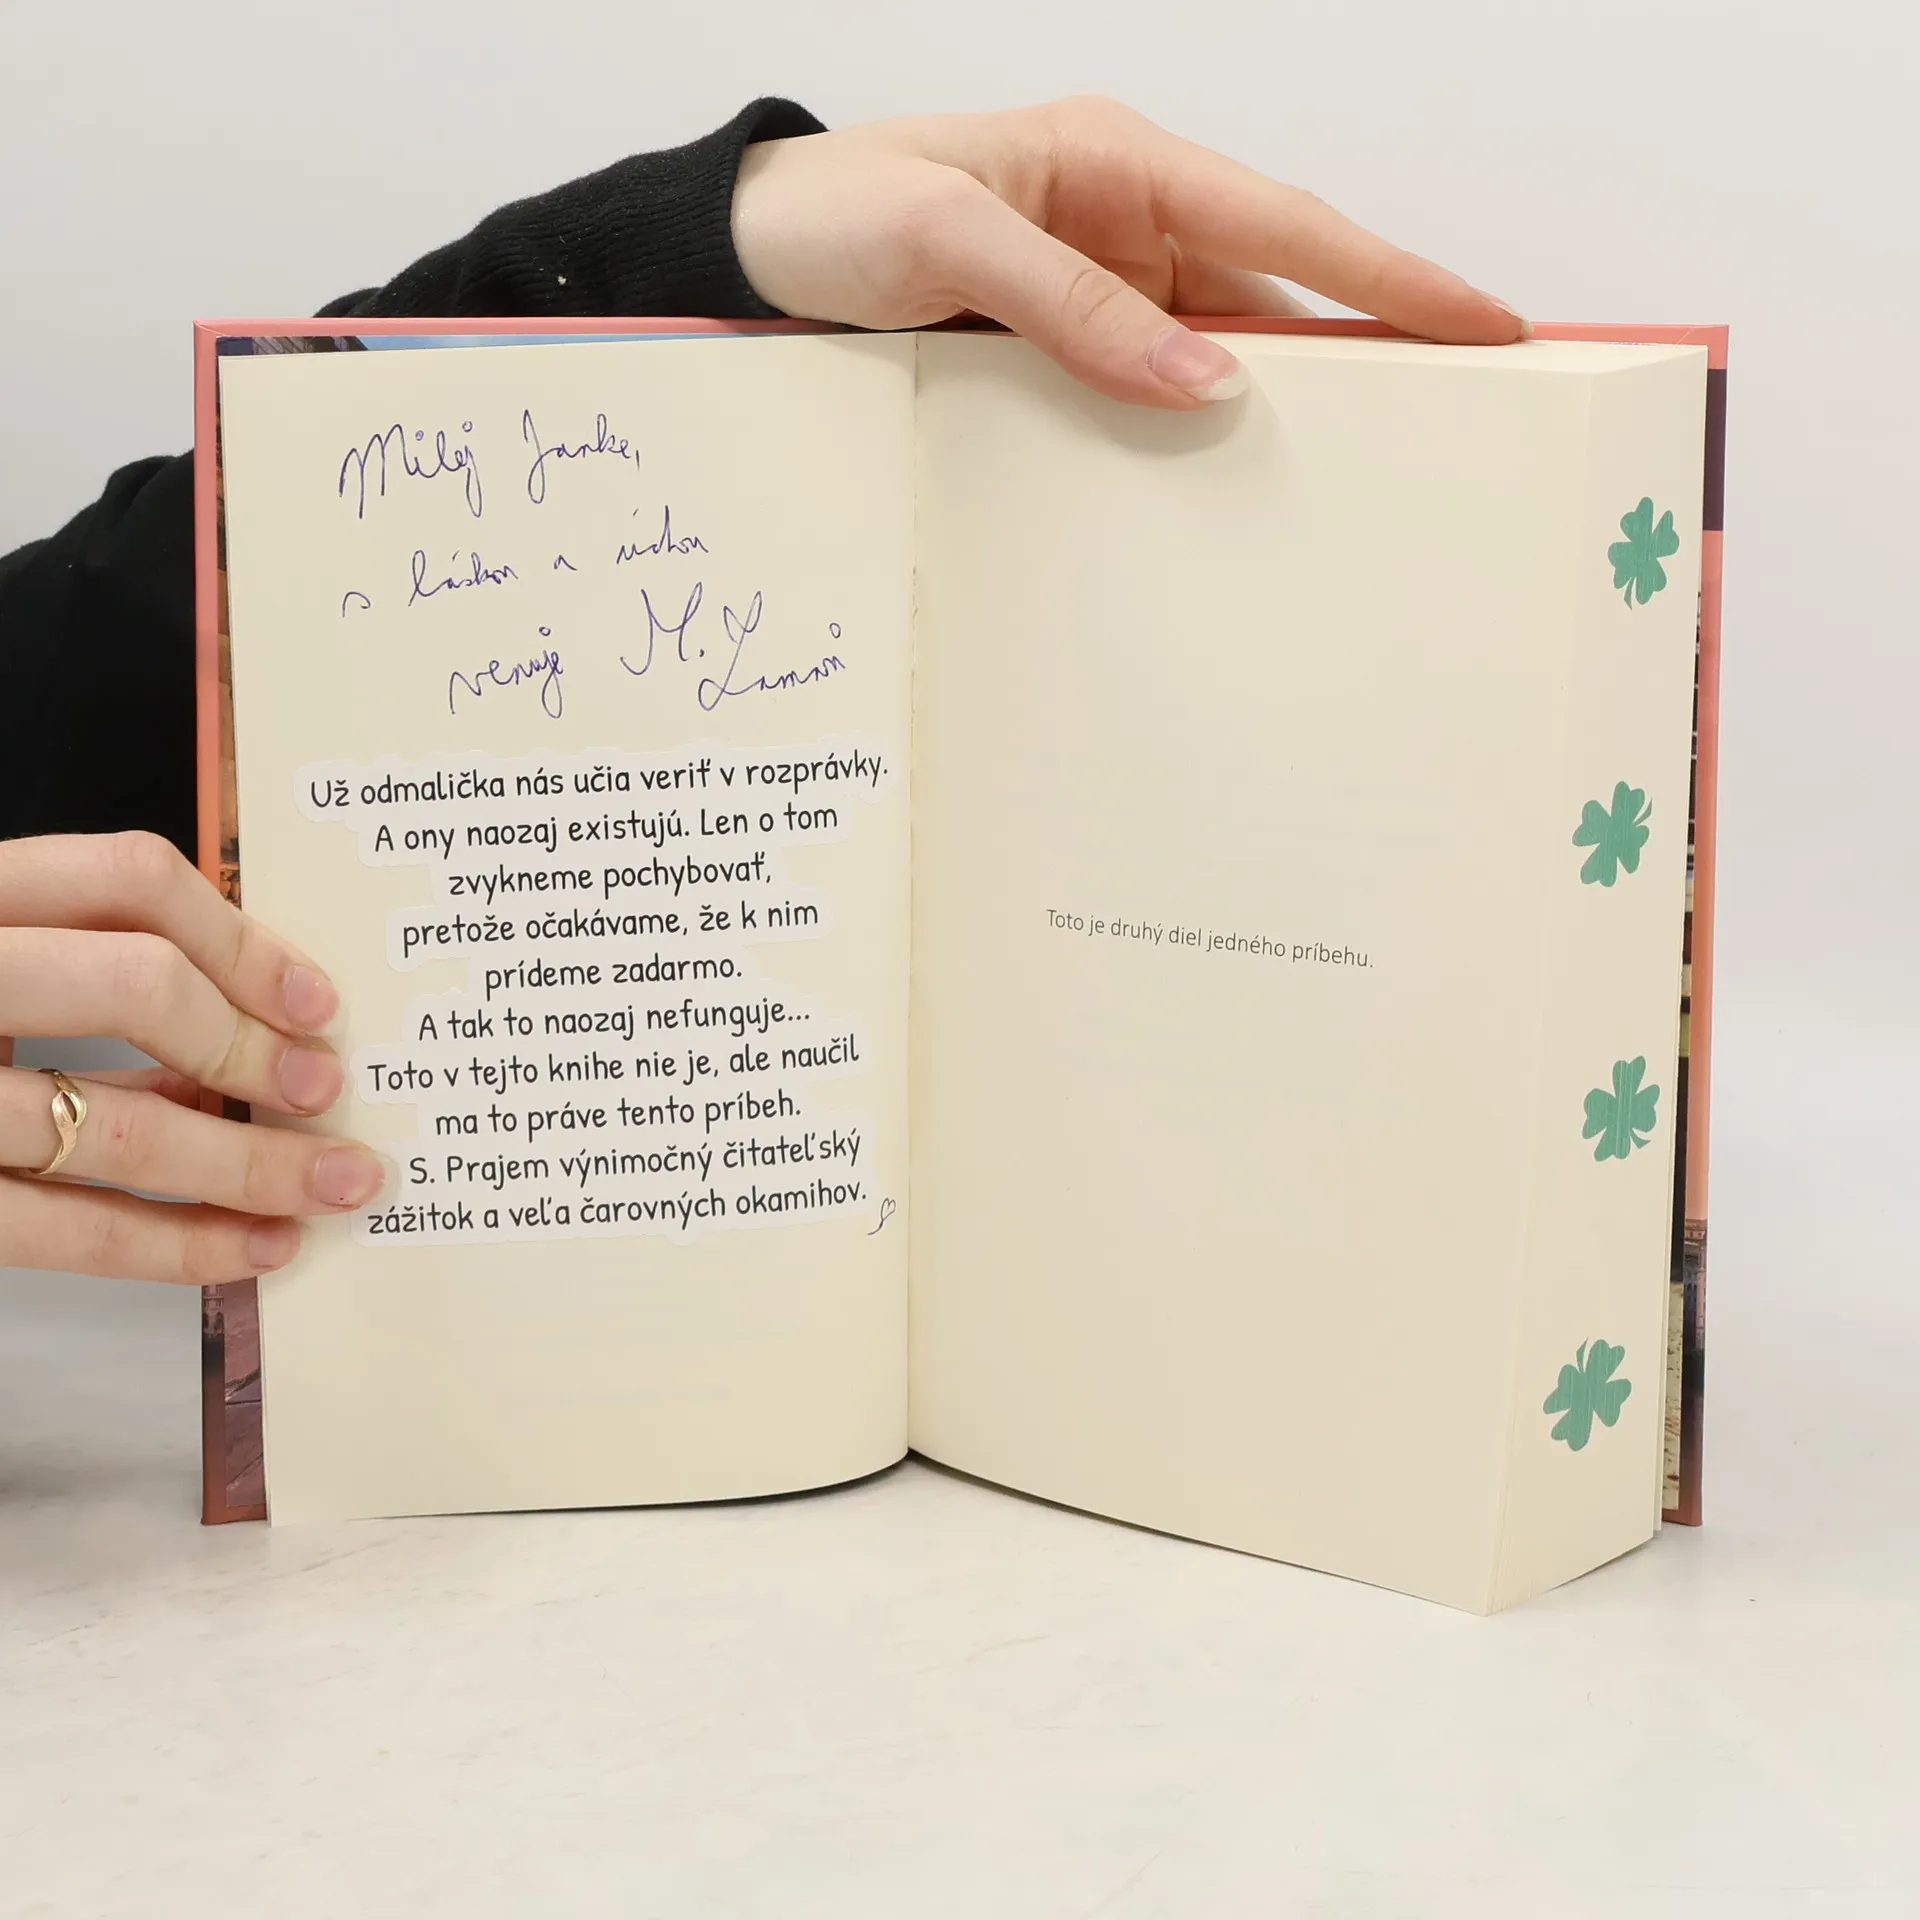 Milej Janke,
s láskou a úctou
venuje M.
Už odmalička nás učia veriť v rozprávky.
A ony naozaj existujú. Len o tom
zvykneme pochybovať,
pretože očakávame, že k nim
prídeme zadarmo.
A tak to naozaj nefunguje...
Toto v tejto knihe nie je, ale naučil
ma to práve tento príbeh.
S. Prajem výnimočný čitateľský
zážitok a veľa čarovných okamihov.
Toto je druhý diel jedného príbehu.